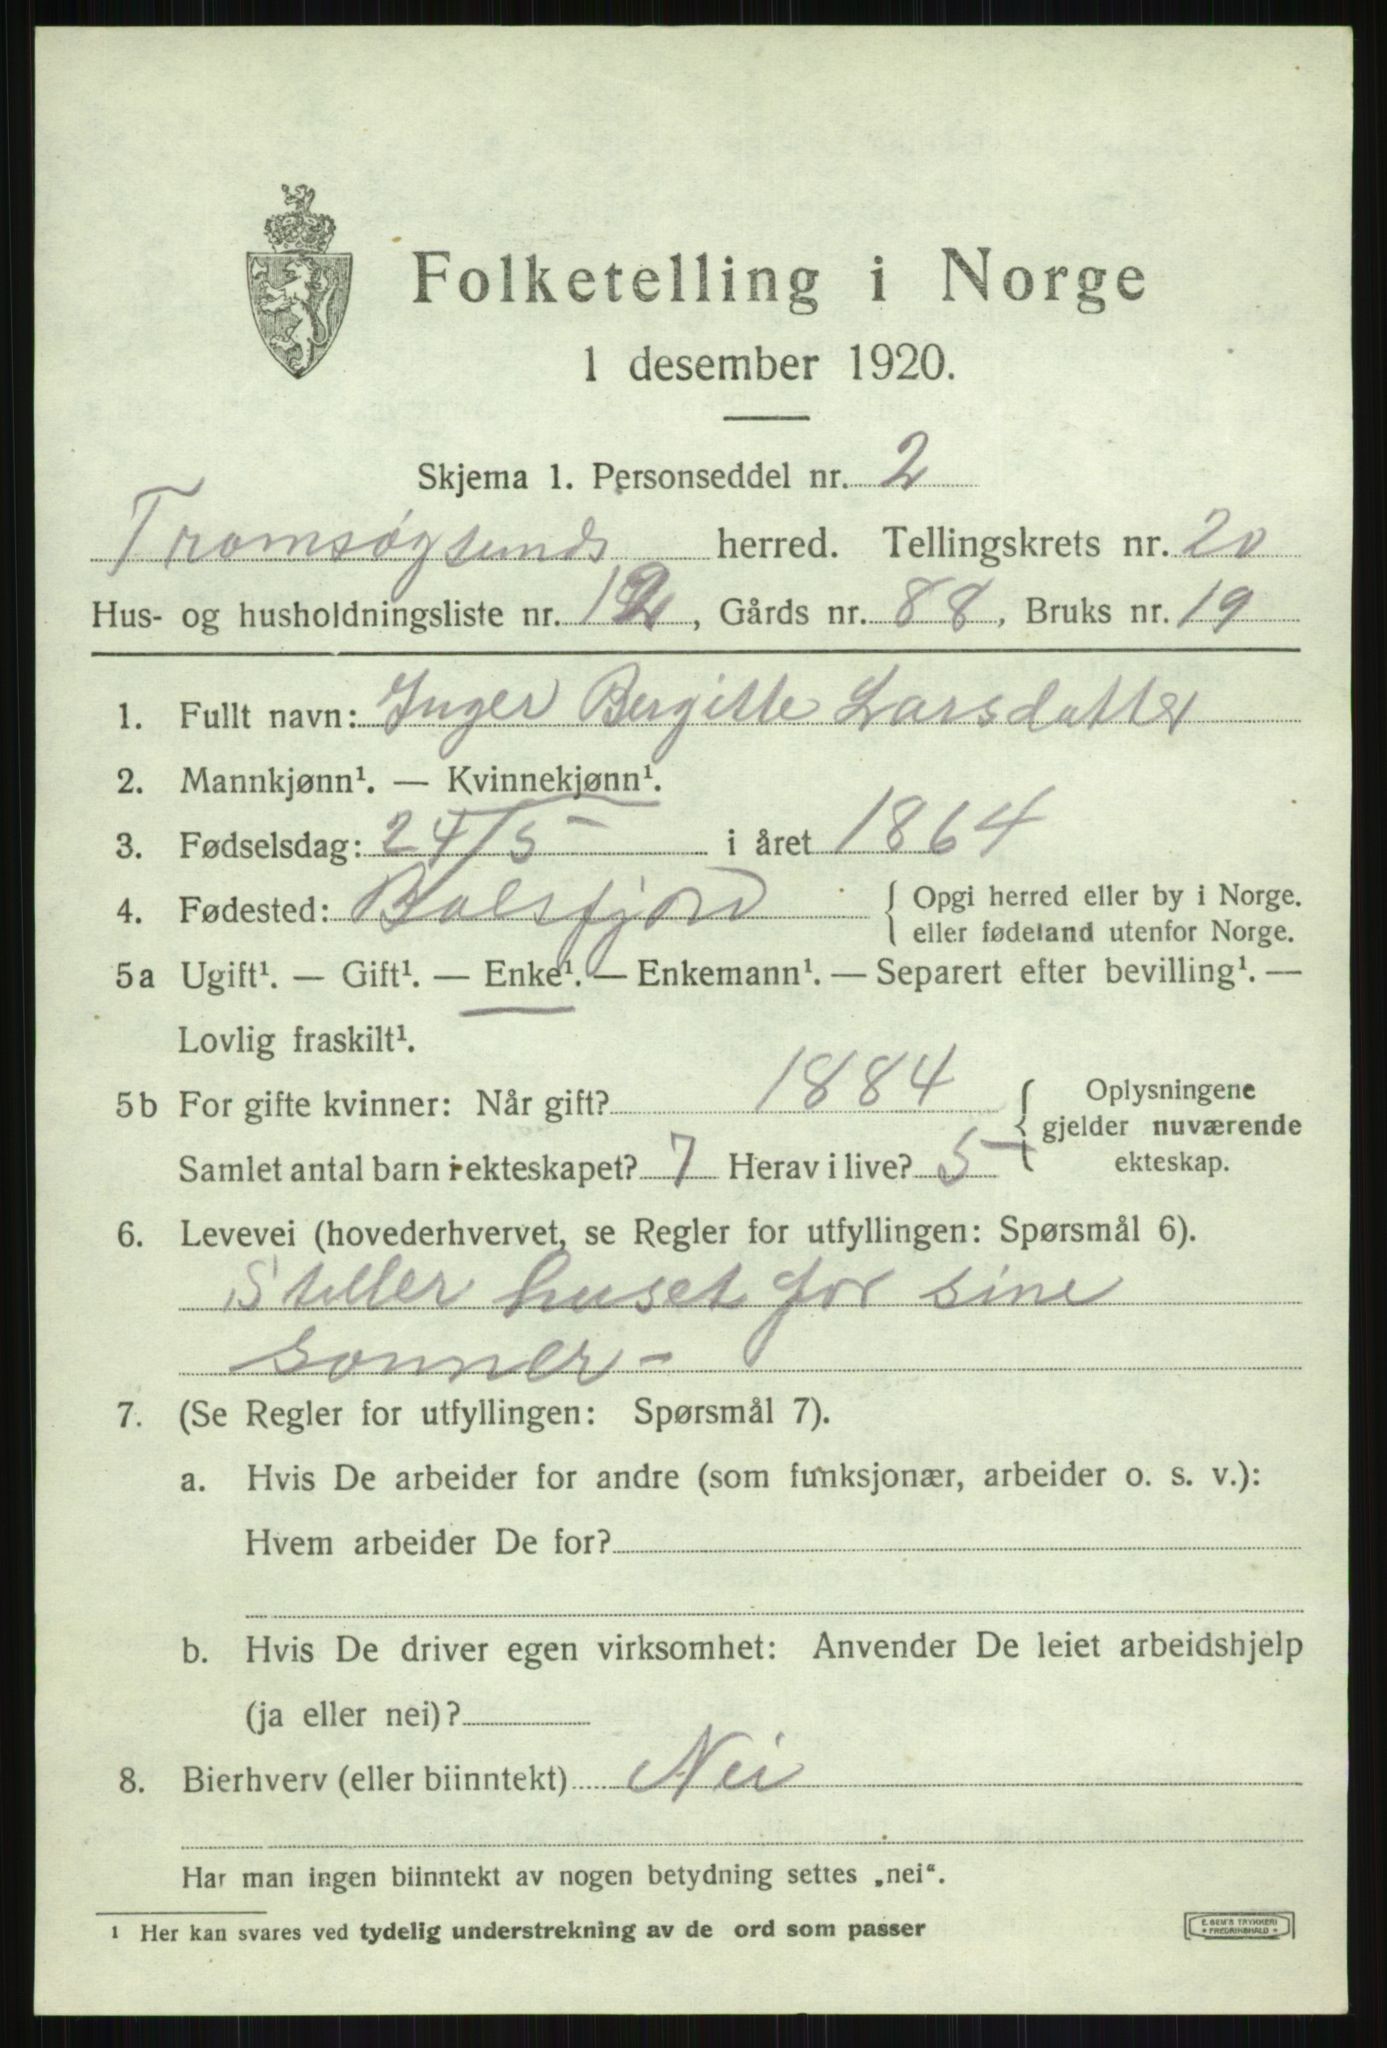 Folketelling i Norge
1 desember 1920.
Skjema 1. Personseddel nr. 2
Tromsøysunds herred. Tellingskrets nr. 20
Hus- og husholdningsliste nr. 12, Gårds nr. 88, Bruks nr. 19
1. Fullt navn: Inger Bergitte Larsdatter
2. Mannkjønn¹. — Kvinnekjønn¹.
3. Fødselsdag: 24/5 i året 1864
4. Fødested: Balsfjord { Opgi herred eller by i Norge.
eller fødeland utenfor Norge.
5a Ugift¹. — Gift¹. — Enke¹. — Enkemann¹. — Separert efter bevilling¹. —
Lovlig fraskilt¹.
5b For gifte kvinner: Når gift? 1884 { Oplysningene
gjelder nuværende
Samlet antal barn i ekteskapet? 7 Herav i live? 5 ekteskap.
6. Levevei (hovederhvervet, se Regler for utfyllingen: Spørsmål 6).
Steller huset for sine
sønner -
7. (Se Regler for utfyllingen: Spørsmål 7).
a. Hvis De arbeider for andre (som funksjonær, arbeider o. s. v.):
Hvem arbeider De for?
b. Hvis De driver egen virksomhet: Anvender De leiet arbeidshjelp
(ja eller nei)?
8. Bierhverv (eller biinntekt) Nei
Har man ingen biinntekt av nogen betydning settes „nei“.
¹ Her kan svares ved tydelig understrekning av de ord som passer
E. SEM'S TRYKKERI
FREDRIKSHALD